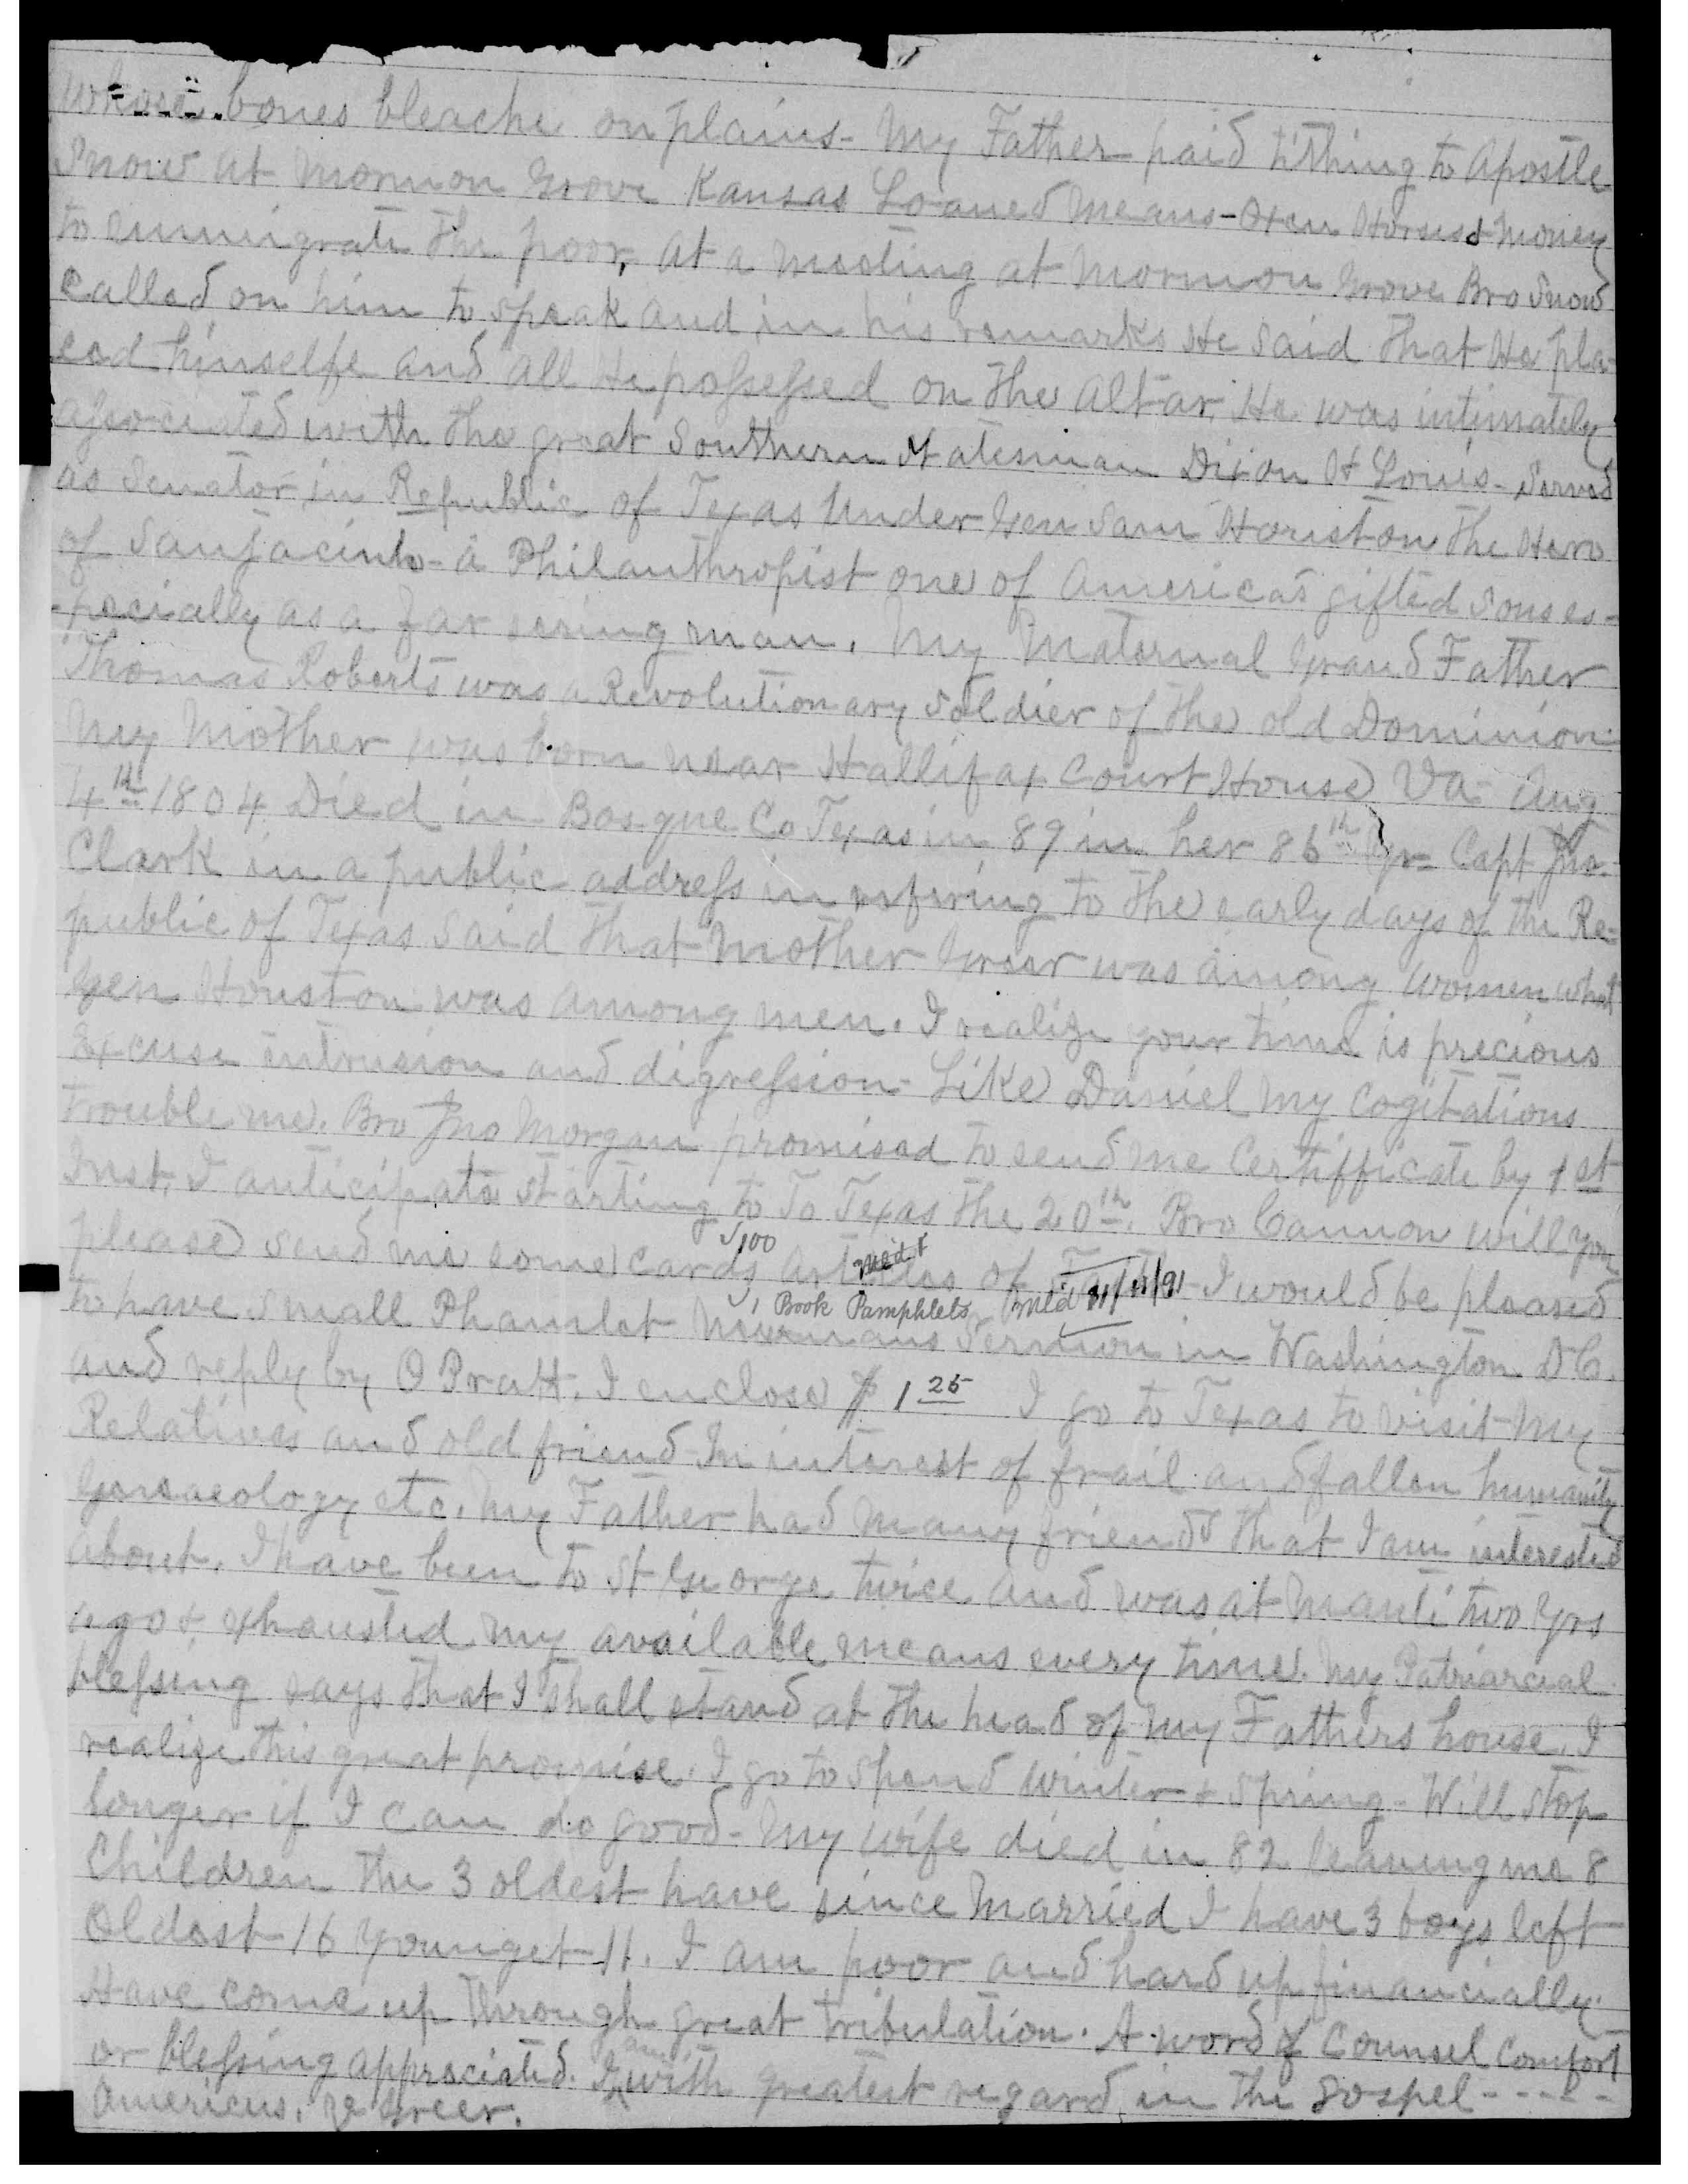 whose bones bleache on plains - My Father paid tithing to Apostle
Snow at Mormon Grove Kansas Loaned means - Oxen Horses & money
to emmigrate the poor, at a meeting at Mormon Grove Bro Snow
called on him to speak and in his remarks He said that He pla-
ced himselfe and all He possessed on the Altar. He was intimately
associated with the great Southern Statesman Dixon H Louis - Served
as Senator in Republic of Texas Under Gen Sam Houston the Hero
of Sanjacinto - a Philanthropist one of America's gifted sons es-
-pecially as a far seeing man. My Maternal Grand Father
Thomas Roberts was a Revolutionary Soldier of the old Dominion
My Mother was born near Hallifax Court House Va - Aug
4th 1804 Died in Bosque Co Texas in 89 in her 86th yr - Capt Jno.
Clark in a public address in refering to the early days of the Re-
public of Texas said that Mother Greer was among women what
Gen Houston was among men. I realize your time is precious
Excuse intrusion and digression - Like Daniel my Cogitations
trouble me. Bro Jno Morgan promised to send me Certifficate by 1st
Inst, I anticipate starting to To Texas the 20th. Bro Cannon will you
please send me some cards Articles of Faith - I would be pleased
100
to have small Phamlet Newmans Sermon in Washington D.C.
1 Book Pamphlets
and reply by O Pratt. I enclose $ 1 25 I go to Texas to visit my
Relatives and old friend - In interest of frail and fallen humanity
Genaeology etc. My Father had many friends that I am interested
about. I have been to St George twice and was at Manti two Yrs
ago & exhausted my available means every time. My Patriarcial
blessing says that I shall stand at the head of my Fathers house. I
realize this great promise. I go to spend winter & Spring - Will stop
longer if I can do good - My wife died in 82 leaving me 8
Children the 3 oldest have since Married I have 3 boys left
Oldest 16 Younget 11. I am poor and hard up financially.
Have come up through great tribulation. A word of Counsel Comfort
or blessing appreciated. I am with greatest regard in the Gospel - - - - -
Americus. Greer.